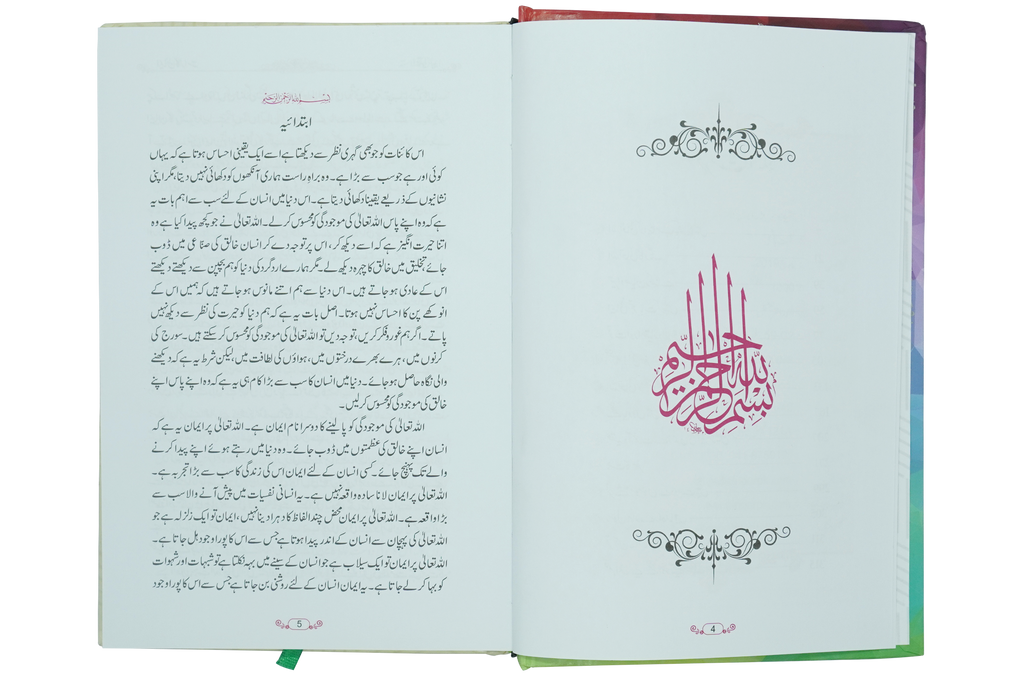 بسم الله الرحمن الرحيم
4
بسم اللہ الرحمن الرحیم
ابتدائیہ
اس کائنات کو جو بھی گہری نظر سے دیکھتا ہے اسے ایک یقینی احساس ہوتا ہے کہ یہاں
کوئی اور ہے جو سب سے بڑا ہے۔ وہ براہِ راست ہماری آنکھوں کو دکھائی نہیں دیتا، مگر اپنی
نشانیوں کے ذریعے یقینا دکھائی دیتا ہے۔ اس دنیا میں انسان کے لئے سب سے اہم بات یہ
ہے کہ وہ اپنے پاس اللہ تعالیٰ کی موجودگی کو محسوس کرلے۔ اللہ تعالیٰ نے جو کچھ پیدا کیا ہے وہ
اتنا حیرت انگیز ہے کہ اسے دیکھ کر، اس پر توجہ دے کر انسان خالق کی صناعی میں ڈوب
جائے، تخلیق میں خالق کا چہرہ دیکھ لے۔ مگر ہمارے اردگرد کی دنیا کو ہم بچپن سے دیکھتے دیکھتے
اس کے عادی ہوجاتے ہیں۔ اس دنیا سے ہم اتنے مانوس ہوجاتے ہیں کہ ہمیں اس کے
انوکھے پن کا احساس نہیں ہوتا۔ اصل بات یہ ہے کہ ہم دنیا کو حیرت کی نظر سے دیکھ نہیں
پاتے۔ اگر ہم غور و فکر کریں، توجہ دیں تو اللہ تعالیٰ کی موجودگی کو محسوس کرسکتے ہیں۔ سورج کی
کرنوں میں، ہرے بھرے درختوں میں، ہواؤں کی لطافت میں، لیکن شرط یہ ہے کہ دیکھنے
والی نگاہ حاصل ہوجائے۔ دنیا میں انسان کا سب سے بڑا کام ہی یہ ہے کہ وہ اپنے پاس اپنے
خالق کی موجودگی کو محسوس کرلیں۔
اللہ تعالیٰ کی موجودگی کو پالینے کا دوسرا نام ایمان ہے۔ اللہ تعالیٰ پر ایمان یہ ہے کہ
انسان اپنے خالق کی عظمتوں میں ڈوب جائے۔ وہ دنیا میں رہتے ہوئے اپنے پیدا کرنے
والے تک پہنچ جائے۔ کسی انسان کے لئے ایمان اس کی زندگی کا سب سے بڑا تجربہ ہے۔
اللہ تعالیٰ پر ایمان لانا سادہ واقعہ نہیں ہے۔ یہ انسانی نفسیات میں پیش آنے والا سب سے
بڑا واقعہ ہے۔ اللہ تعالیٰ پر ایمان محض چند الفاظ کا دہرا دینا نہیں، ایمان تو ایک زلزلہ ہے جو
اللہ تعالیٰ کی پہچان سے انسان کے اندر پیدا ہوتا ہے جس سے اس کا پورا وجود ہل جاتا ہے۔
اللہ تعالیٰ پر ایمان تو ایک سیلاب ہے جو انسان کے سینے میں بہہ نکلتا ہے تو شبہات اور شہوات
کو بہا کر لے جاتا ہے۔ یہ ایمان انسان کے لئے روشنی بن جاتا ہے جس سے اس کا پورا وجود
5